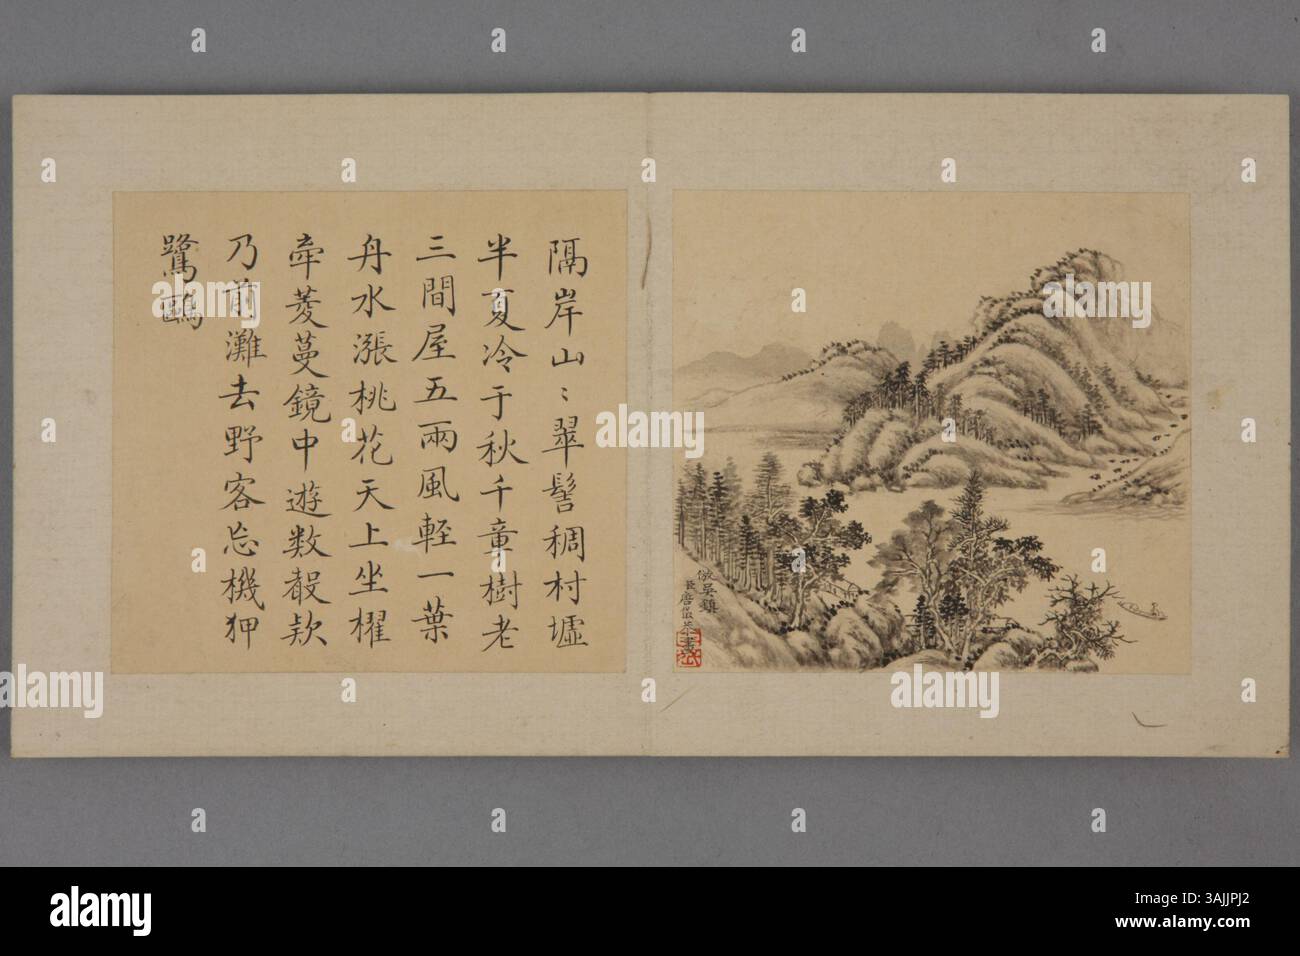 隔岸山〻翠髻稠村墟
半夏冷于秋千童樹老
三間屋五兩風輕一葉
舟水漲桃花天上坐櫂
牽菱蔓鏡中遊数聲欵
乃前灘去野客忘機狎
鷺鷗
倣吳鎮
a
alamy
Image ID: 3AJJPJ2
www.alamy.com